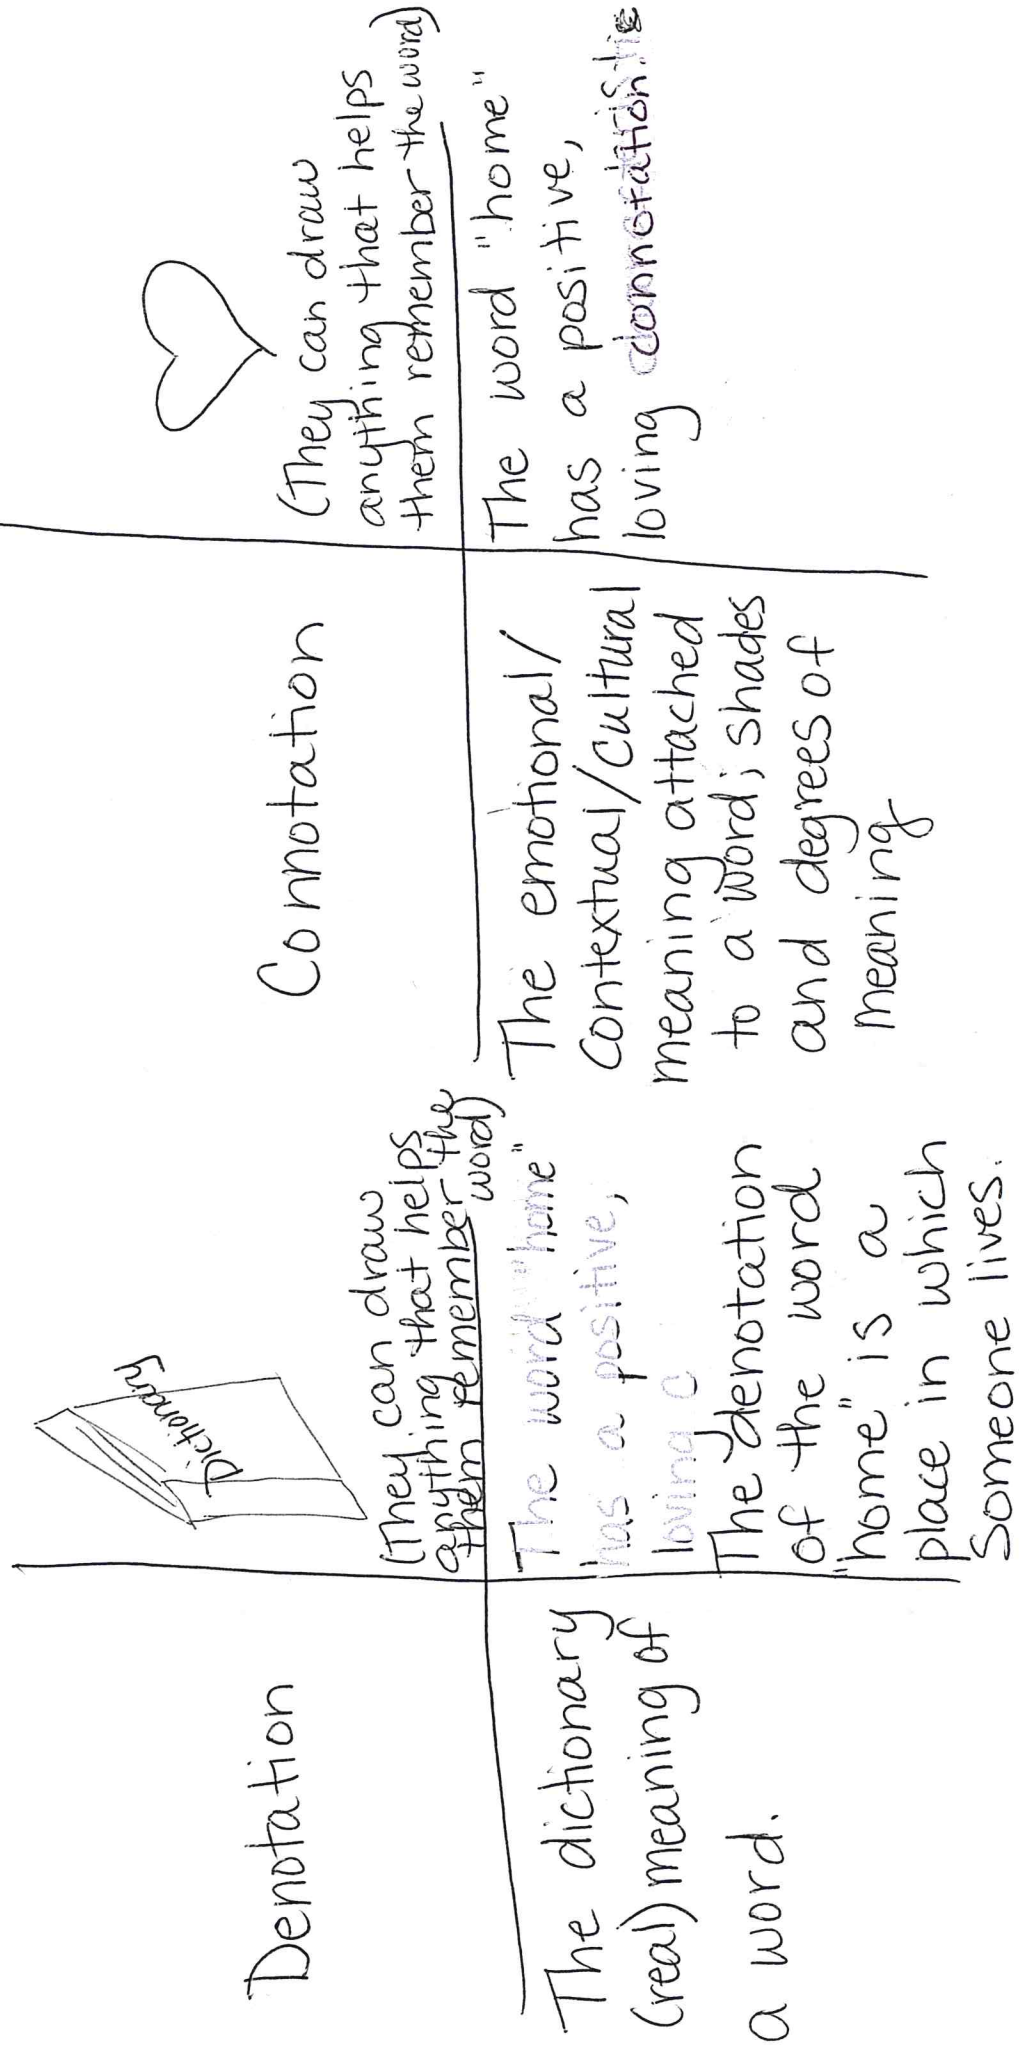 Denotation
Dictionary
(They can draw
anything that helps
them remember the
word)
The dictionary
(real) meaning of
a word.
The word "home"
has a positive,
loving c
The denotation
of the word
"home" is a
place in which
someone lives.
Connotation
(They can draw
anything that helps
them remember the word)
The emotional/
contextual/cultural
meaning attached
to a word; shades
and degrees of
meaning
The word "home"
has a positive,
loving connotation.